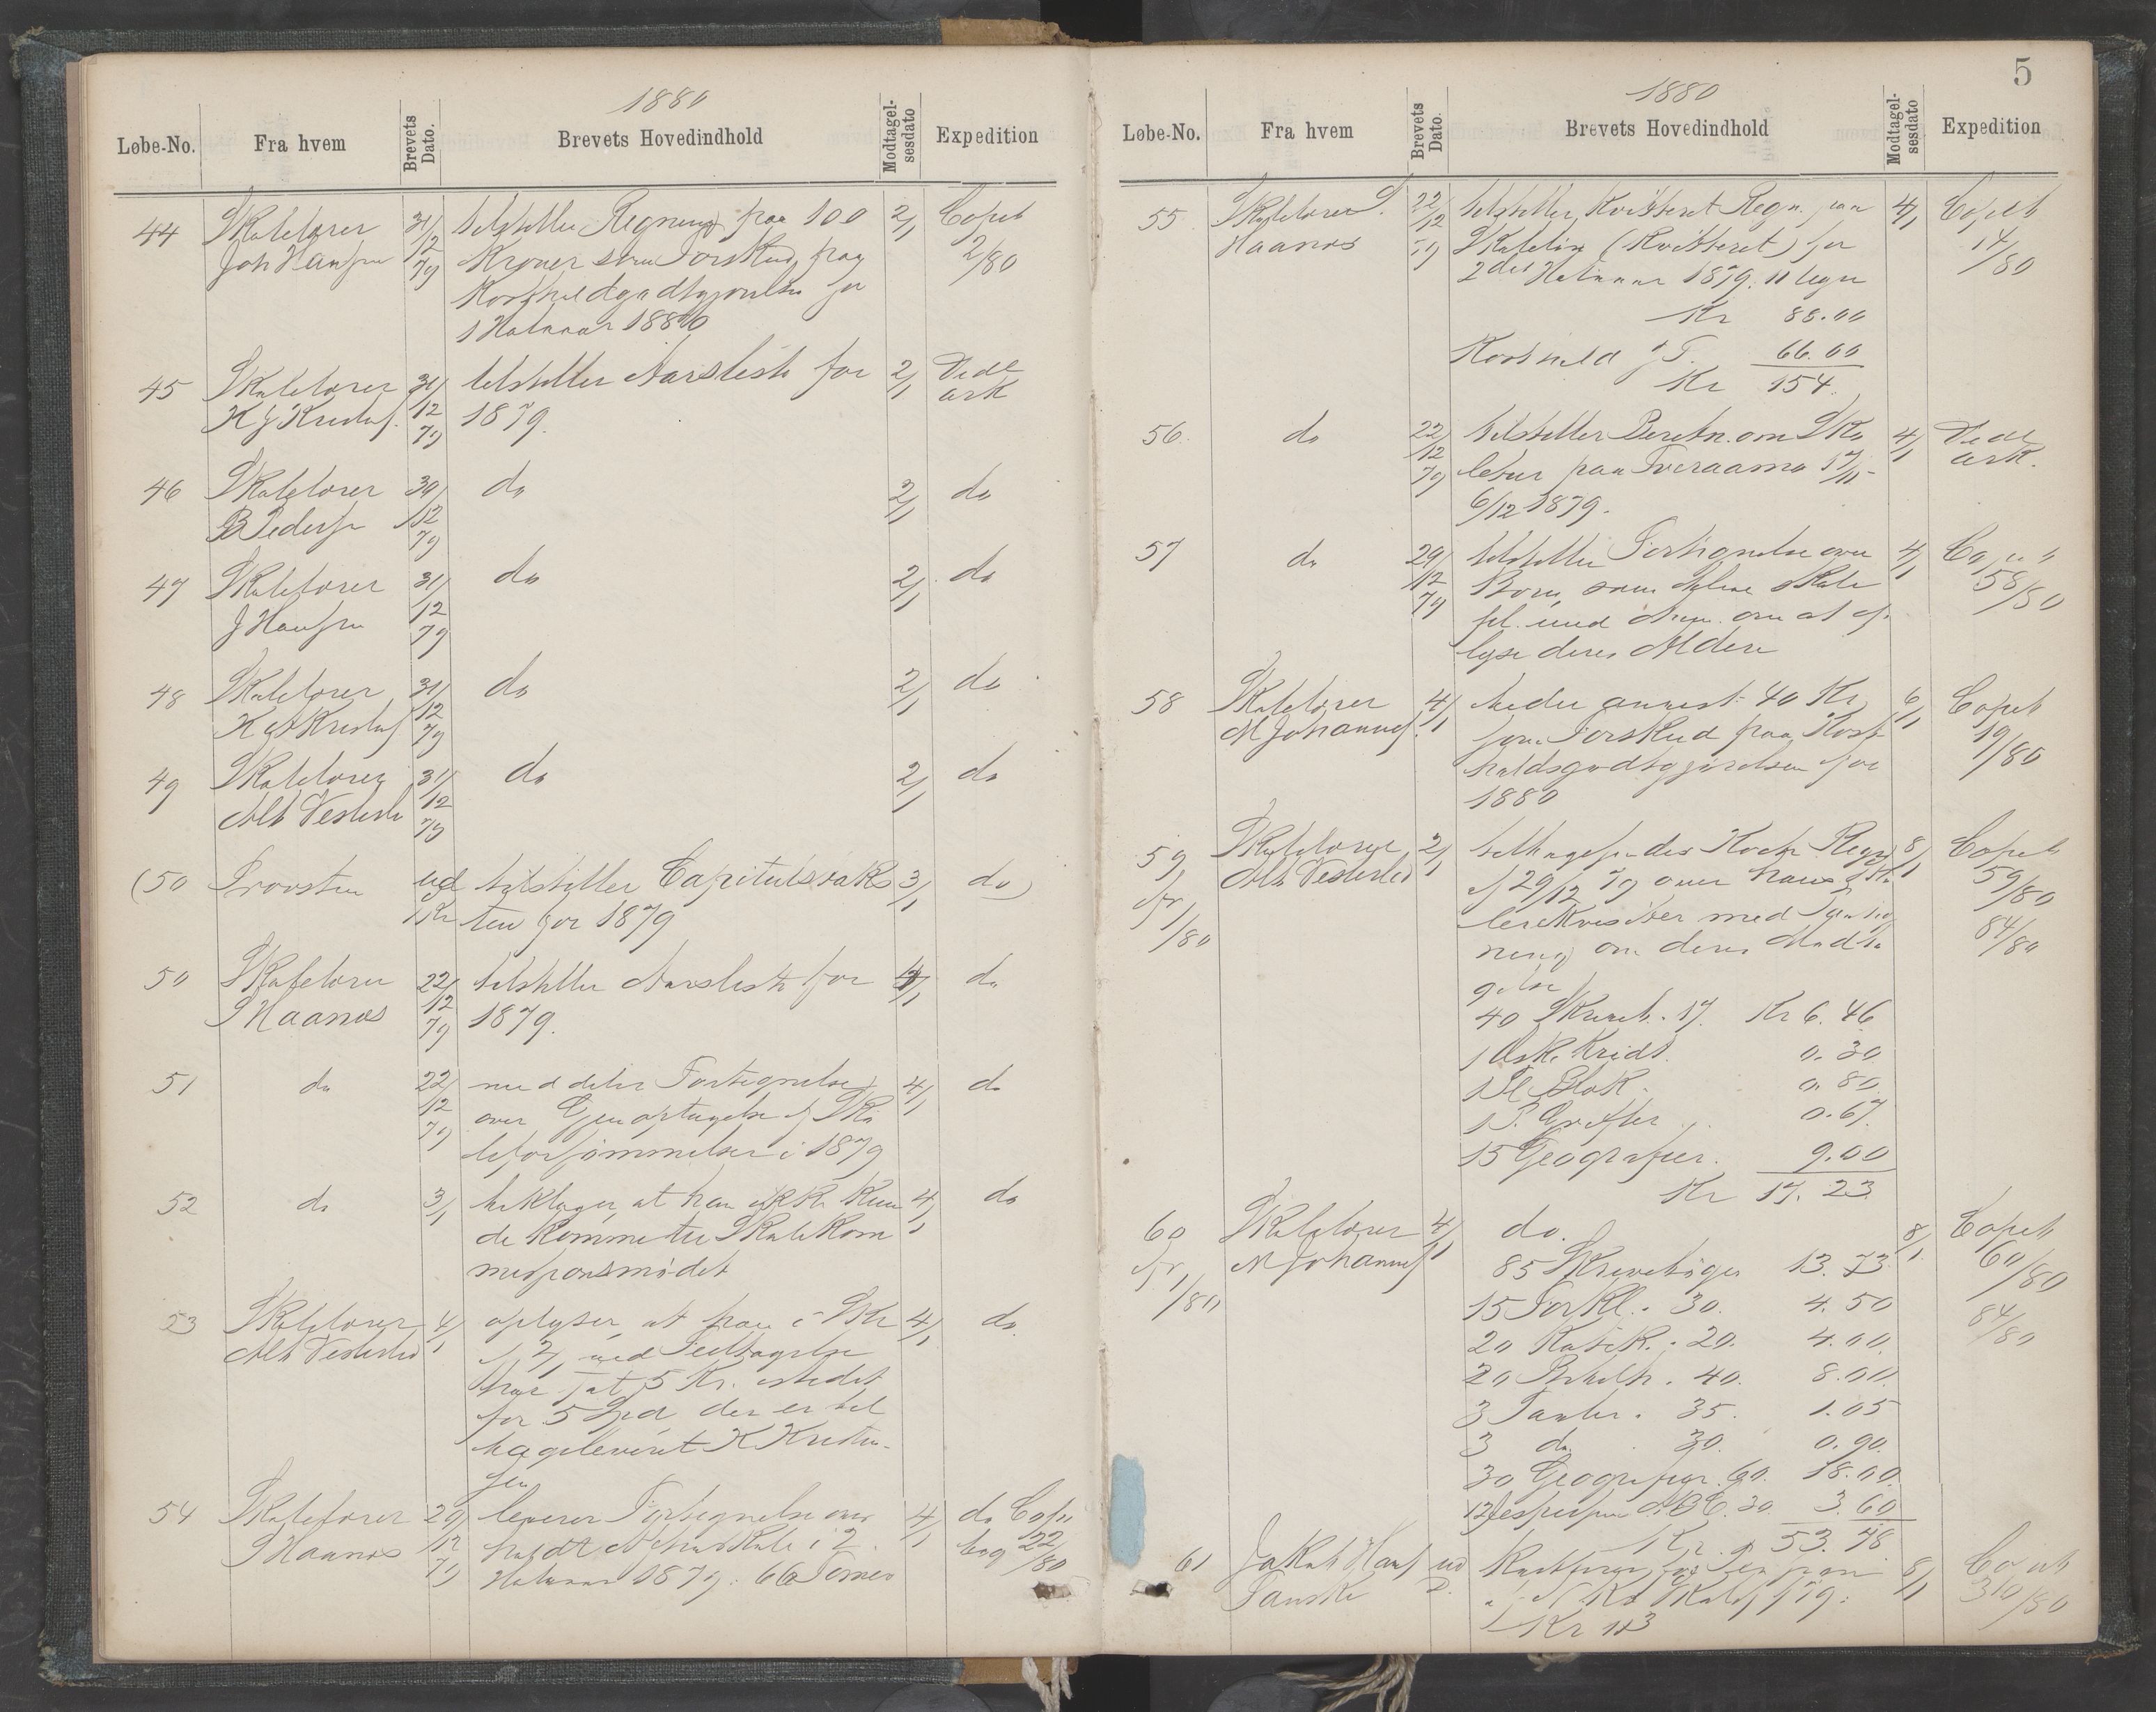 1880
Løbe-No. Fra hvem Brevets Dato. Brevets Hovedindhold Modtagelsesdato Expedition
44 Skolelærer 31/12 79 tilstiller Regning paa 100 2/1 Copeb
Joh Hansen Kroner som Forskud paa 2/80
Kostholdgodtgjørelse for
1 Halvaar 1880
45 Skolelærer 31/12 79 tilstiller Aarsliste for 2/1 Vedl
K J Kristofs. 1879. ark
46 Skolelærer 30/12 79 do 2/1 do
B Peders
47 Skolelærer 31/12 79 do 2/1 do
J Hansen
48 Skolelærer 31/12 79 do 2/1 do
K Kristofs
49 Skolelærer 31/12 79 do 2/1 do
Alb Vesterli
(50 Provsten ud tilstiller Capitulstaks 3/1 do)
ten for 1879
50 Skolelærer 22/12 79 tilstiller Aarsliste for 4/1 do
S Haanes 1879.
51 do 22/12 79 meddeler Fortegnelse 4/1 do
over Gjenoptagelse af Sko
leforsømmelser i 1879
52 do 3/1 beklager, at han ikke kun 4/1 do
de komme til Skolekom
missjonsmødet
53 Skolelærer 4/1 oplyser at han i Skr 4/1 do
Alb Vesterli af 2/1 ved Feiltagelse
har sat 5 Kr. istedet
for 5 Spd, der er til
bageleveret K Kristen-
sen
54 Skolelærer 29/12 79 leverer Fortegnelse over 4/1 do Copi
S Haanes holdt Aftenskole i 2. bog 22/80
Halvaar 1879: 66 Timer
5
1880
Løbe-No. Fra hvem Brevets Dato. Brevets Hovedindhold Modtagelsesdato Expedition
55 Skolelærer S. 22/12 79 tilstiller kvitteret Regn. paa 4/1 Copeb
Haanes Skoleløn (kvitteret) for 14/80
2det Halvaar 1879. 11 Uger
Kr 88.00
Kosthold 66.00
Kr 154.
56. do 22/12 79 tilstiller Beretn. om Sko 4/1 Vedl
letur paa Tveraamo 17/11- ark.
6/12 1879.
57 do 29/12 79 tilstiller Fortegnelse over 4/1
Børn, som skole 58/80
om at op
lyse deres Aldere
58 Skolelærer 4/1 beder anvist 40 Kr 6/1 Copeb
M Johannes. som Forskud paa Kost 19/80
holdsgodtgjørelsen for
1880
59 Skolelærer 2/1 tilbagesender Kochs Regn 8/1 Copeb
Alb Vesterli af 29/12 79 over hans Sko 59/80
1/80 lerekvisiter med Paateg 84/80
ning om deres Modta
gelse
40 Skriveb. 17. Kr 6.46
1 Æske Kridt. 0.30
1 Fl Blæk. 0.80
1 P. Grifler 0.67
15 Geografier. 9.00
Kr 17.23
60 Skolelærer 4/1 do. 8/1 Copeb
M Johannes 85 Skrivebøger 13.73 60/80
1/80 15 Forkl. . 30. 4.50 84/80
20 Katek. . 20. 4.00.
20 Bibelh. . 40. 8.00.
3 Tavler . 35. 1.05
3 do. . 30. 0.90.
30 Geografier. 60. 18.00
12 Jespersens ABC. 30. 3.60
Kr. 53.78
61 Jakob Hans ud 8/1
Vanske D. 310/80
Kr 113